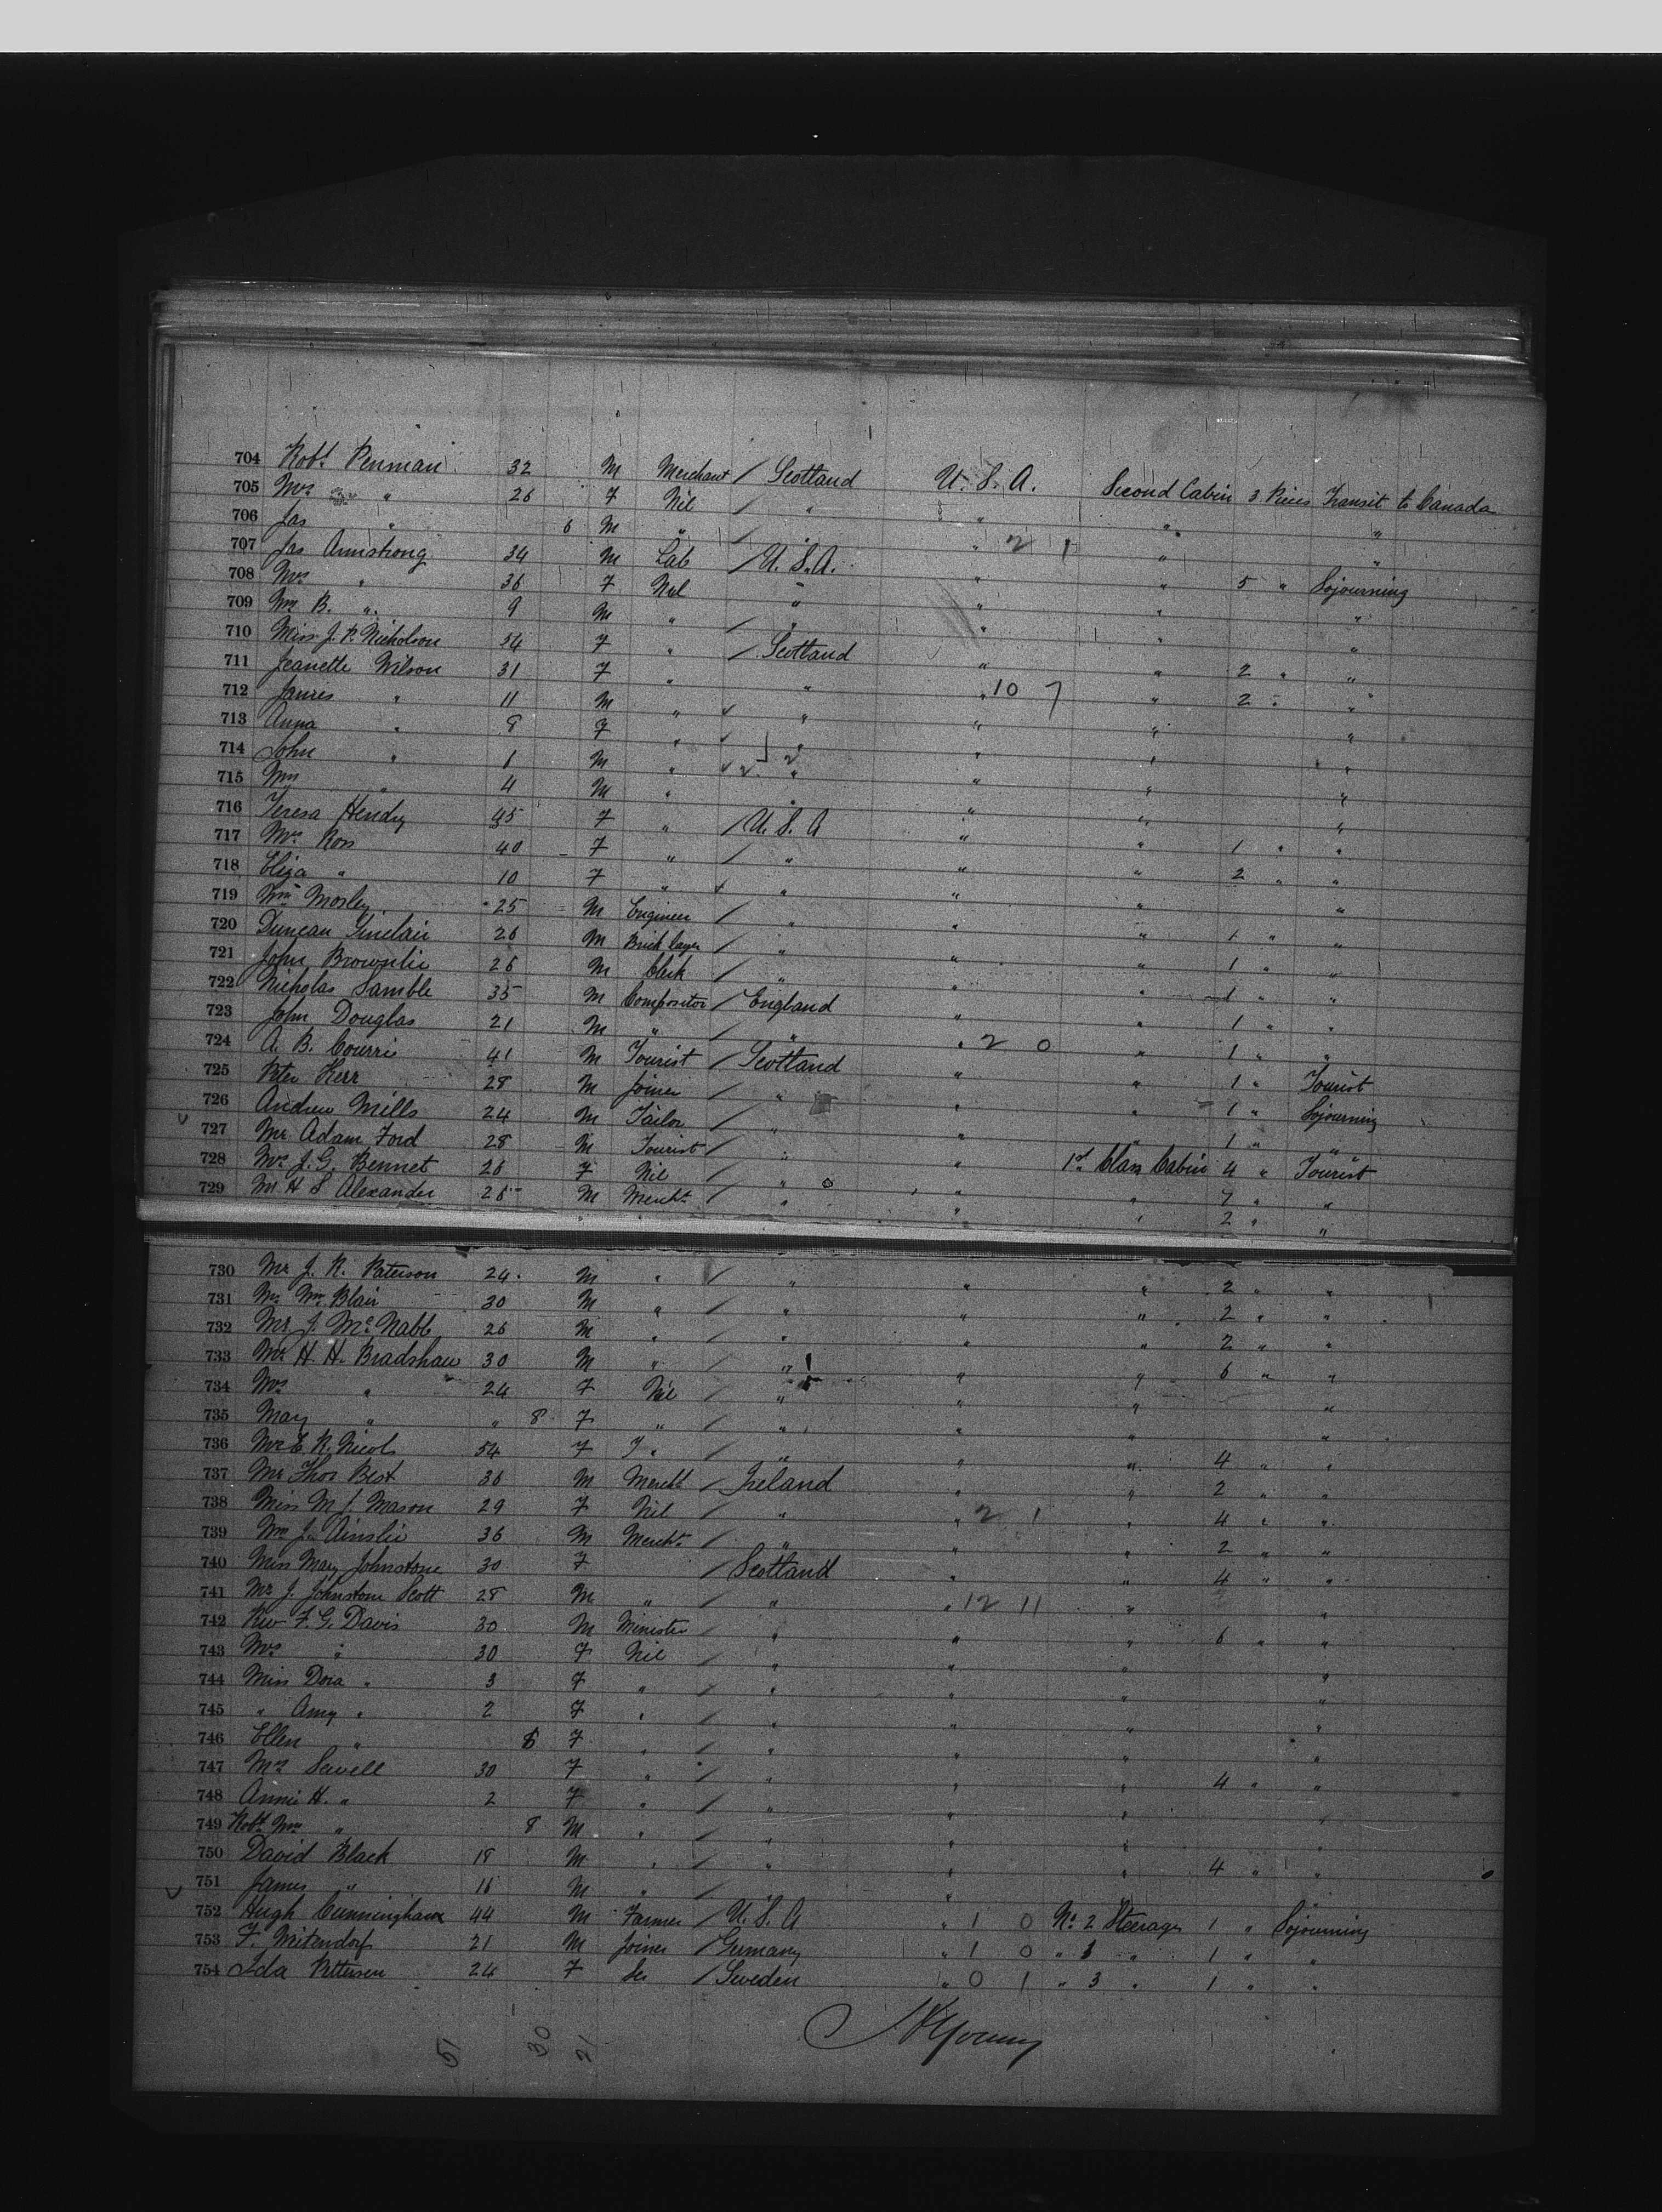 704 Robt. Penman 32 M Merchant / Scotland U. S. A. Second Cabin 3 Pieces Transit to Canada
705 Mrs " 26 F Nil / " " " "
706 Jas " 6 M " / " " 2 1 " "
707 Jas Armstrong 34 M Lab / U. S. A. " " 5 " Sojourning
708 Mrs " 36 F Nil " " " "
709 Wm B. " 9 M " / " " " "
710 Miss J. P. Nicholson 34 F " / Scotland " " 2 " "
711 Jeanette Wilson 31 F " " " 10 7 " 2 " "
712 James " 11 M " " " " "
713 Anna " 8 F " " " " "
714 John " 1 M " " " " "
715 Wm " 4 M " " " " "
716 Teresa Hendry 45 F " / U. S. A " " 1 " "
717 Mrs Ross 40 F " / " " " 2 " "
718 Eliza " 10 F " " " " "
719 Wm Mosley 25 M Engineer / " " " 1 " "
720 Duncan Sinclair 26 M Brick layer / " " " 1 " "
721 John Brownlie 26 M Clerk / " " " 1 " "
722 Nicholas Samble 35 M Compositor / England " " 1 " "
723 John Douglas 21 M " / " " 2 0 " 1 " "
724 A. B. Courri 41 M Tourist / Scotland " " 1 " Tourist
725 Peter Kerr 28 M Joiner / " " " 1 " Sojourning
726 Andrew Mills 24 M Tailor / " " " 1 " "
727 Mr. Adam Ford 28 M Tourist / " " 1st Class Cabin 4 " Tourist
728 Mrs J. G. Bennet 26 F Nil / " " " 7 " "
729 Mr H S Alexander 26 M Mercht. / " " " 2 " "
730 Mr J. R. Paterson 24 M " / " " " 2 " "
731 Mr Wm. Blair 30 M " / " " " 2 " "
732 Mr J. McNabb 26 M " / " " " 2 " "
733 Mr H. H. Bradshaw 30 M " / " " " 6 " "
734 Mrs " 24 F Nil / " " " "
735 May " " 8 F " / " " " "
736 Mrs E. R. Nicol 54 F " / " " " 4 " "
737 Mr Thos Best 36 M Mercht. / Ireland " " 2 " "
738 Miss M. J. Mason 29 F Nil / " " 2 1 " 4 " "
739 Mr J. Ainslie 36 M Mercht. / " " " 2 " "
740 Miss May Johnstone 30 F / Scotland " " 4 " "
741 Mr J. Johnstone Scott 28 M " / " " 12 11 " "
742 Rev F. G. Davis 30 M Minister / " " " 6 " "
743 Mrs " 30 F Nil / " " " "
744 Miss Dora " 3 F " / " " " "
745 " Amy " 2 F " / " " " "
746 Ellen " 8 F " / " " " "
747 Mrs Sewell 30 F " / " " " 4 " "
748 Annie H. " 2 F " / " " " "
749 Robt. Wm " 8 M " / " " " "
750 David Black 18 M " / " " " 4 " "
751 James " 16 M " / " " "
752 Hugh Cunningham 44 M Farmer / U. S. A " 1 0 No. 2 Steerage 1 " Sojourning
753 F. Mitendorf 21 M Joiner / Germany " 1 0 " 3 " 1 " "
754 Ida Pettersen 24 F Ser / Sweden " 0 1 " 3 " 1 " "
51 30 21
Young